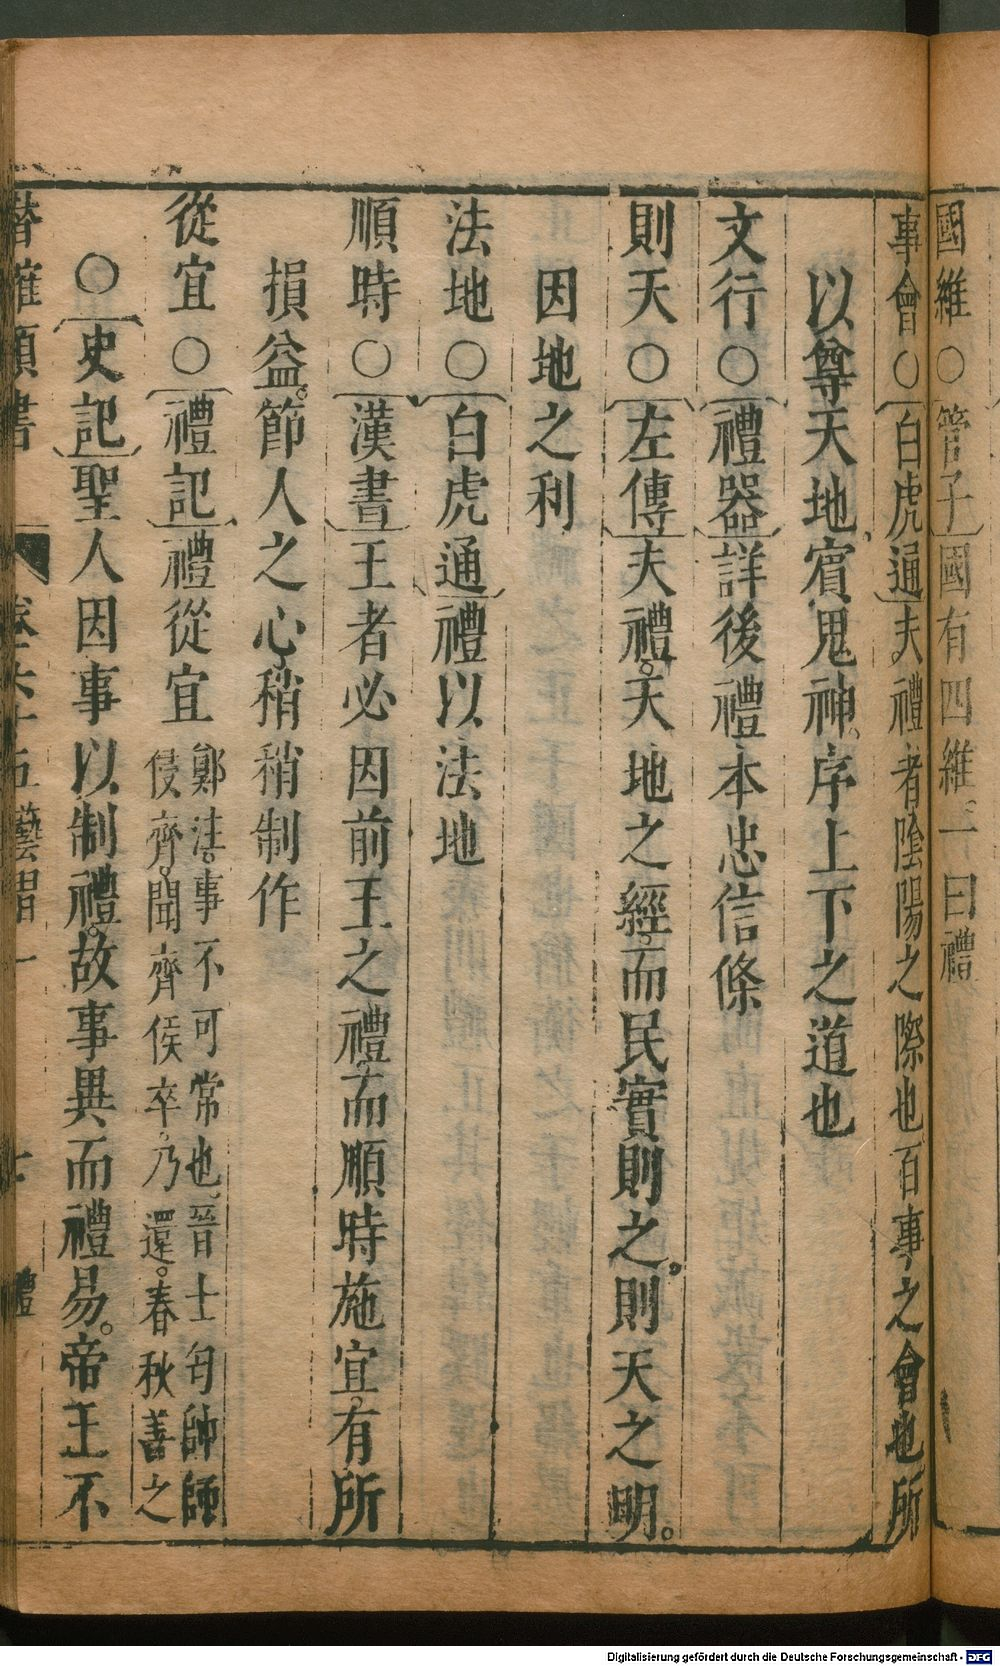 國維○管子國有四維一曰禮
事會○白虎通夫禮者陰陽之際也百事之會也所
以尊天地儐鬼神序上下之道也
文行○禮器詳後禮本忠信條
則天○左傳夫禮天地之經而民實則之則天之明
因地之利
法地○白虎通禮以法地
順時○漢書王者必因前王之禮而順時施宜有所
損益節人之心稍稍制作
從宜○禮記禮從宜
鄭注事不可常也晉士匄帥師
侵齊聞齊侯卒乃還春秋善之
○史記聖人因事以制禮故事異而禮易帝王不
卷六十五 藝習一 七 禮
Digitalisierung gefördert durch die Deutsche Forschungsgemeinschaft - DFG